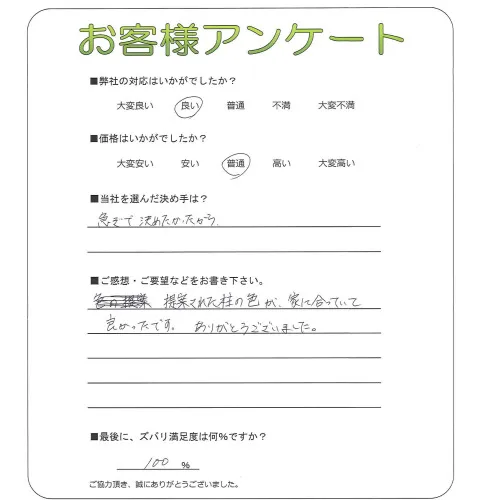 お客様アンケート
■弊社の対応はいかがでしたか？
大変良い 良い 普通 不満 大変不満
■価格はいかがでしたか？
大変安い 安い 普通 高い 大変高い
■当社を選んだ決め手は？
急ぎで決めたかったから
■ご感想・ご要望などをお書き下さい。
提案された柱の色が、家に合っていて
良かったです。ありがとうございました。
■最後に、ズバリ満足度は何％ですか？
100 ％
ご協力頂き、誠にありがとうございました。